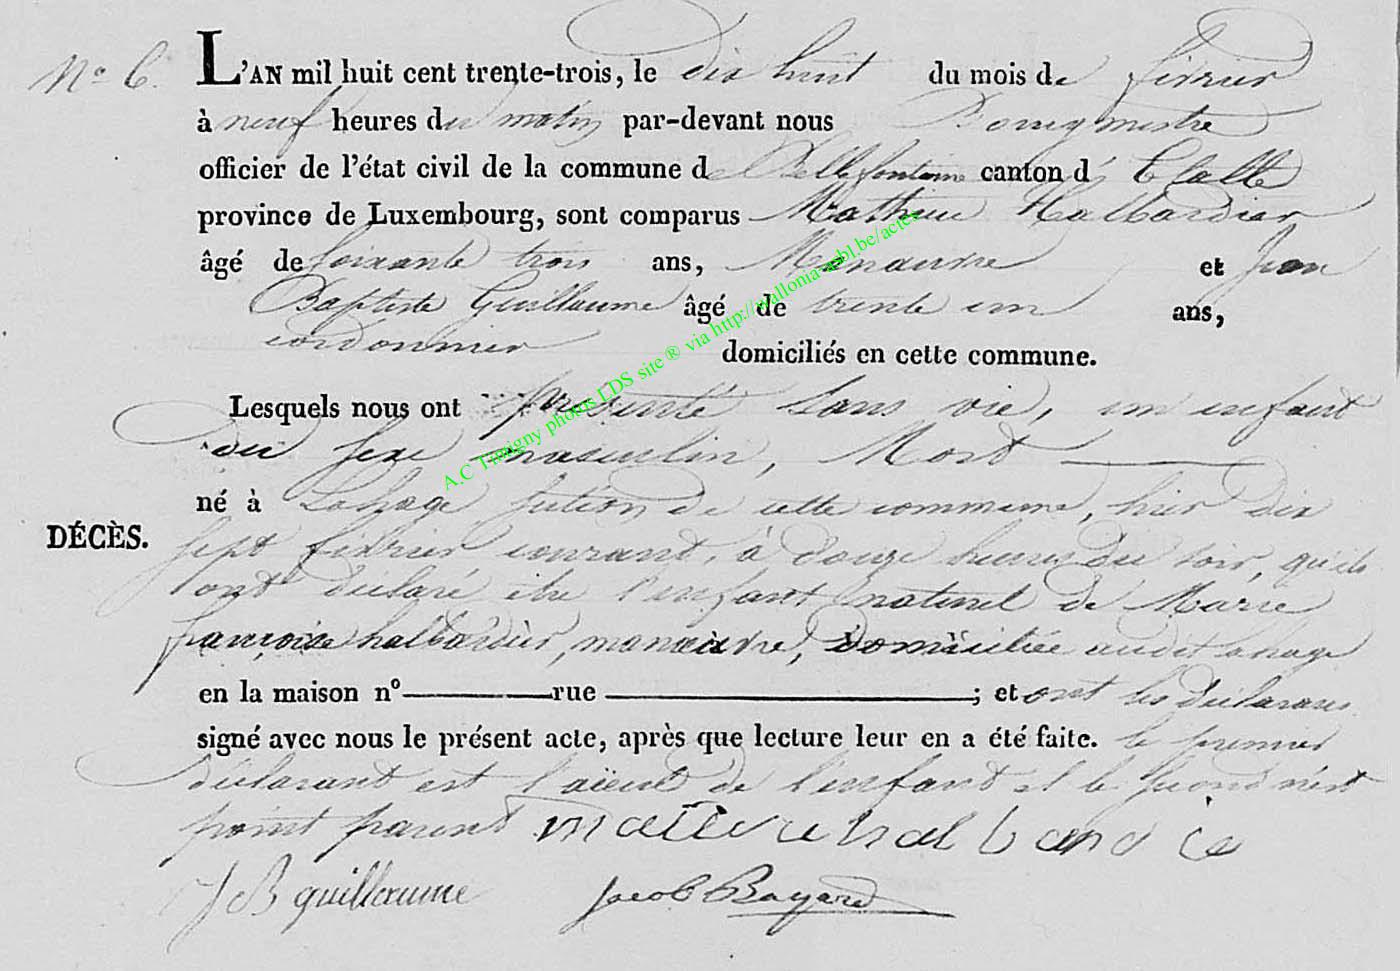 N° 6. L'AN mil huit cent trente-trois, le dix huit du mois de février
à neuf heures du matin par-devant nous Bourgmestre
officier de l'état civil de la commune de Bellefontaine canton d' Etalle
province de Luxembourg, sont comparus Mathieu Halbardier
âgé de soixante trois ans, Manœuvre et Jean
Baptiste Guillaume âgé de trente un ans,
cordonnier domiciliés en cette commune.
Lesquels nous ont présenté sans vie, un enfant
du sexe masculin, Mort
né à Lahage section de cette commune, hier dix
DÉCÈS.
sept février courant, à douze heures du soir, qu'ils
ont déclaré être l'enfant naturel de Marie
françoise halbardier, manœuvre, domiciliée audit Lahage
en la maison n° rue ; et ont les déclarans
signé avec nous le présent acte, après que lecture leur en a été faite. le premier
déclarant est l'aïeul de l'enfant et le second n'est
point parent mattieu halbardie
J B guillaume Jacob Bayard
A.C Tintigny photos LDS site ® via http://wallonia-asbl.be/actes